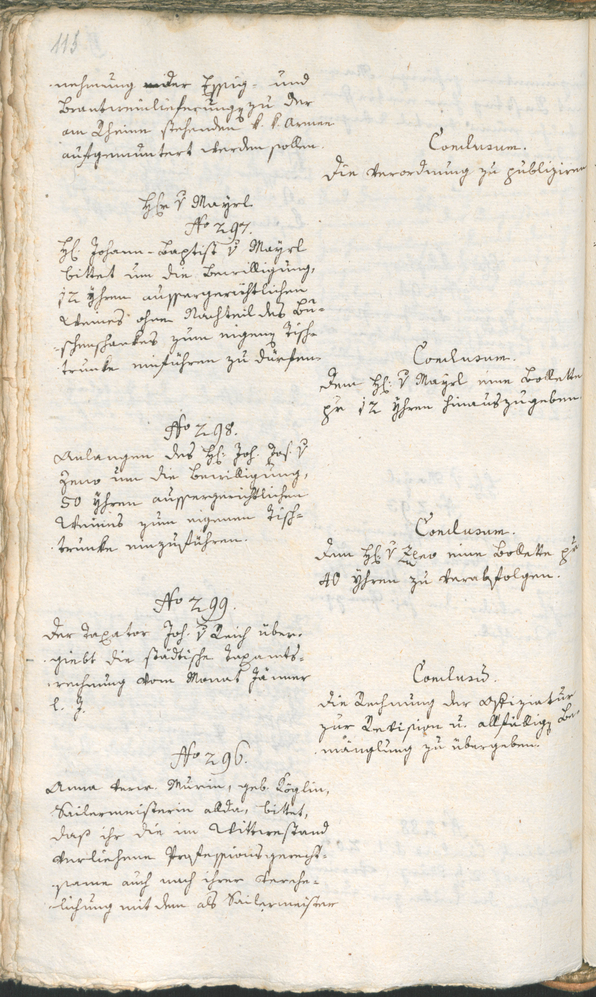 113.
nehmung der Essig- und
Brantweinlieferung zu der
am Rheine stehenden k. k. Armee
aufgemuntert werden sollen.
Conclusum.
Die Verordnung zu publiziren
H: v Mayrl
No 297.
H: Johann-Baptist v Mayrl
bittet um die Bewilligung,
12 Yhren aussergerichtlichen
Weines ohne Nachteil des Bu-
schenschankes zum eigenen Tisch-
trunke einführen zu dürfen.
Conclusum.
dem H: v Mayrl eine Bollette
pr 12 Yhren hinauszugeben.
No 298.
Anlangen des H: Joh. Jos. v
Zeno um die Bewilligung,
50 Yhren aussergerichtlichen
Weines zum eigenen Tisch-
trunke einzuführen.
Conclusum.
dem H: v Zeno eine Bollette pr
40 Yhren zu verabfolgen.
No 299.
Der Taxator Joh. v Reich über-
giebt die städtische Taxamts-
rechnung vom Monat Jänner
l. J.
Conclusu.
die Rechnung der Offiziatur
zur Revision u. allfällig Be-
mänglung zu übergeben.
No 296.
Anna verw. Murin, geb. Köglin,
Sailermeisterin allda, bittet,
daß ihr die im Wittwestand
verliehene Professionsgerecht-
same auch nach ihrer Verehe-
lichung mit dem als Sailermeister